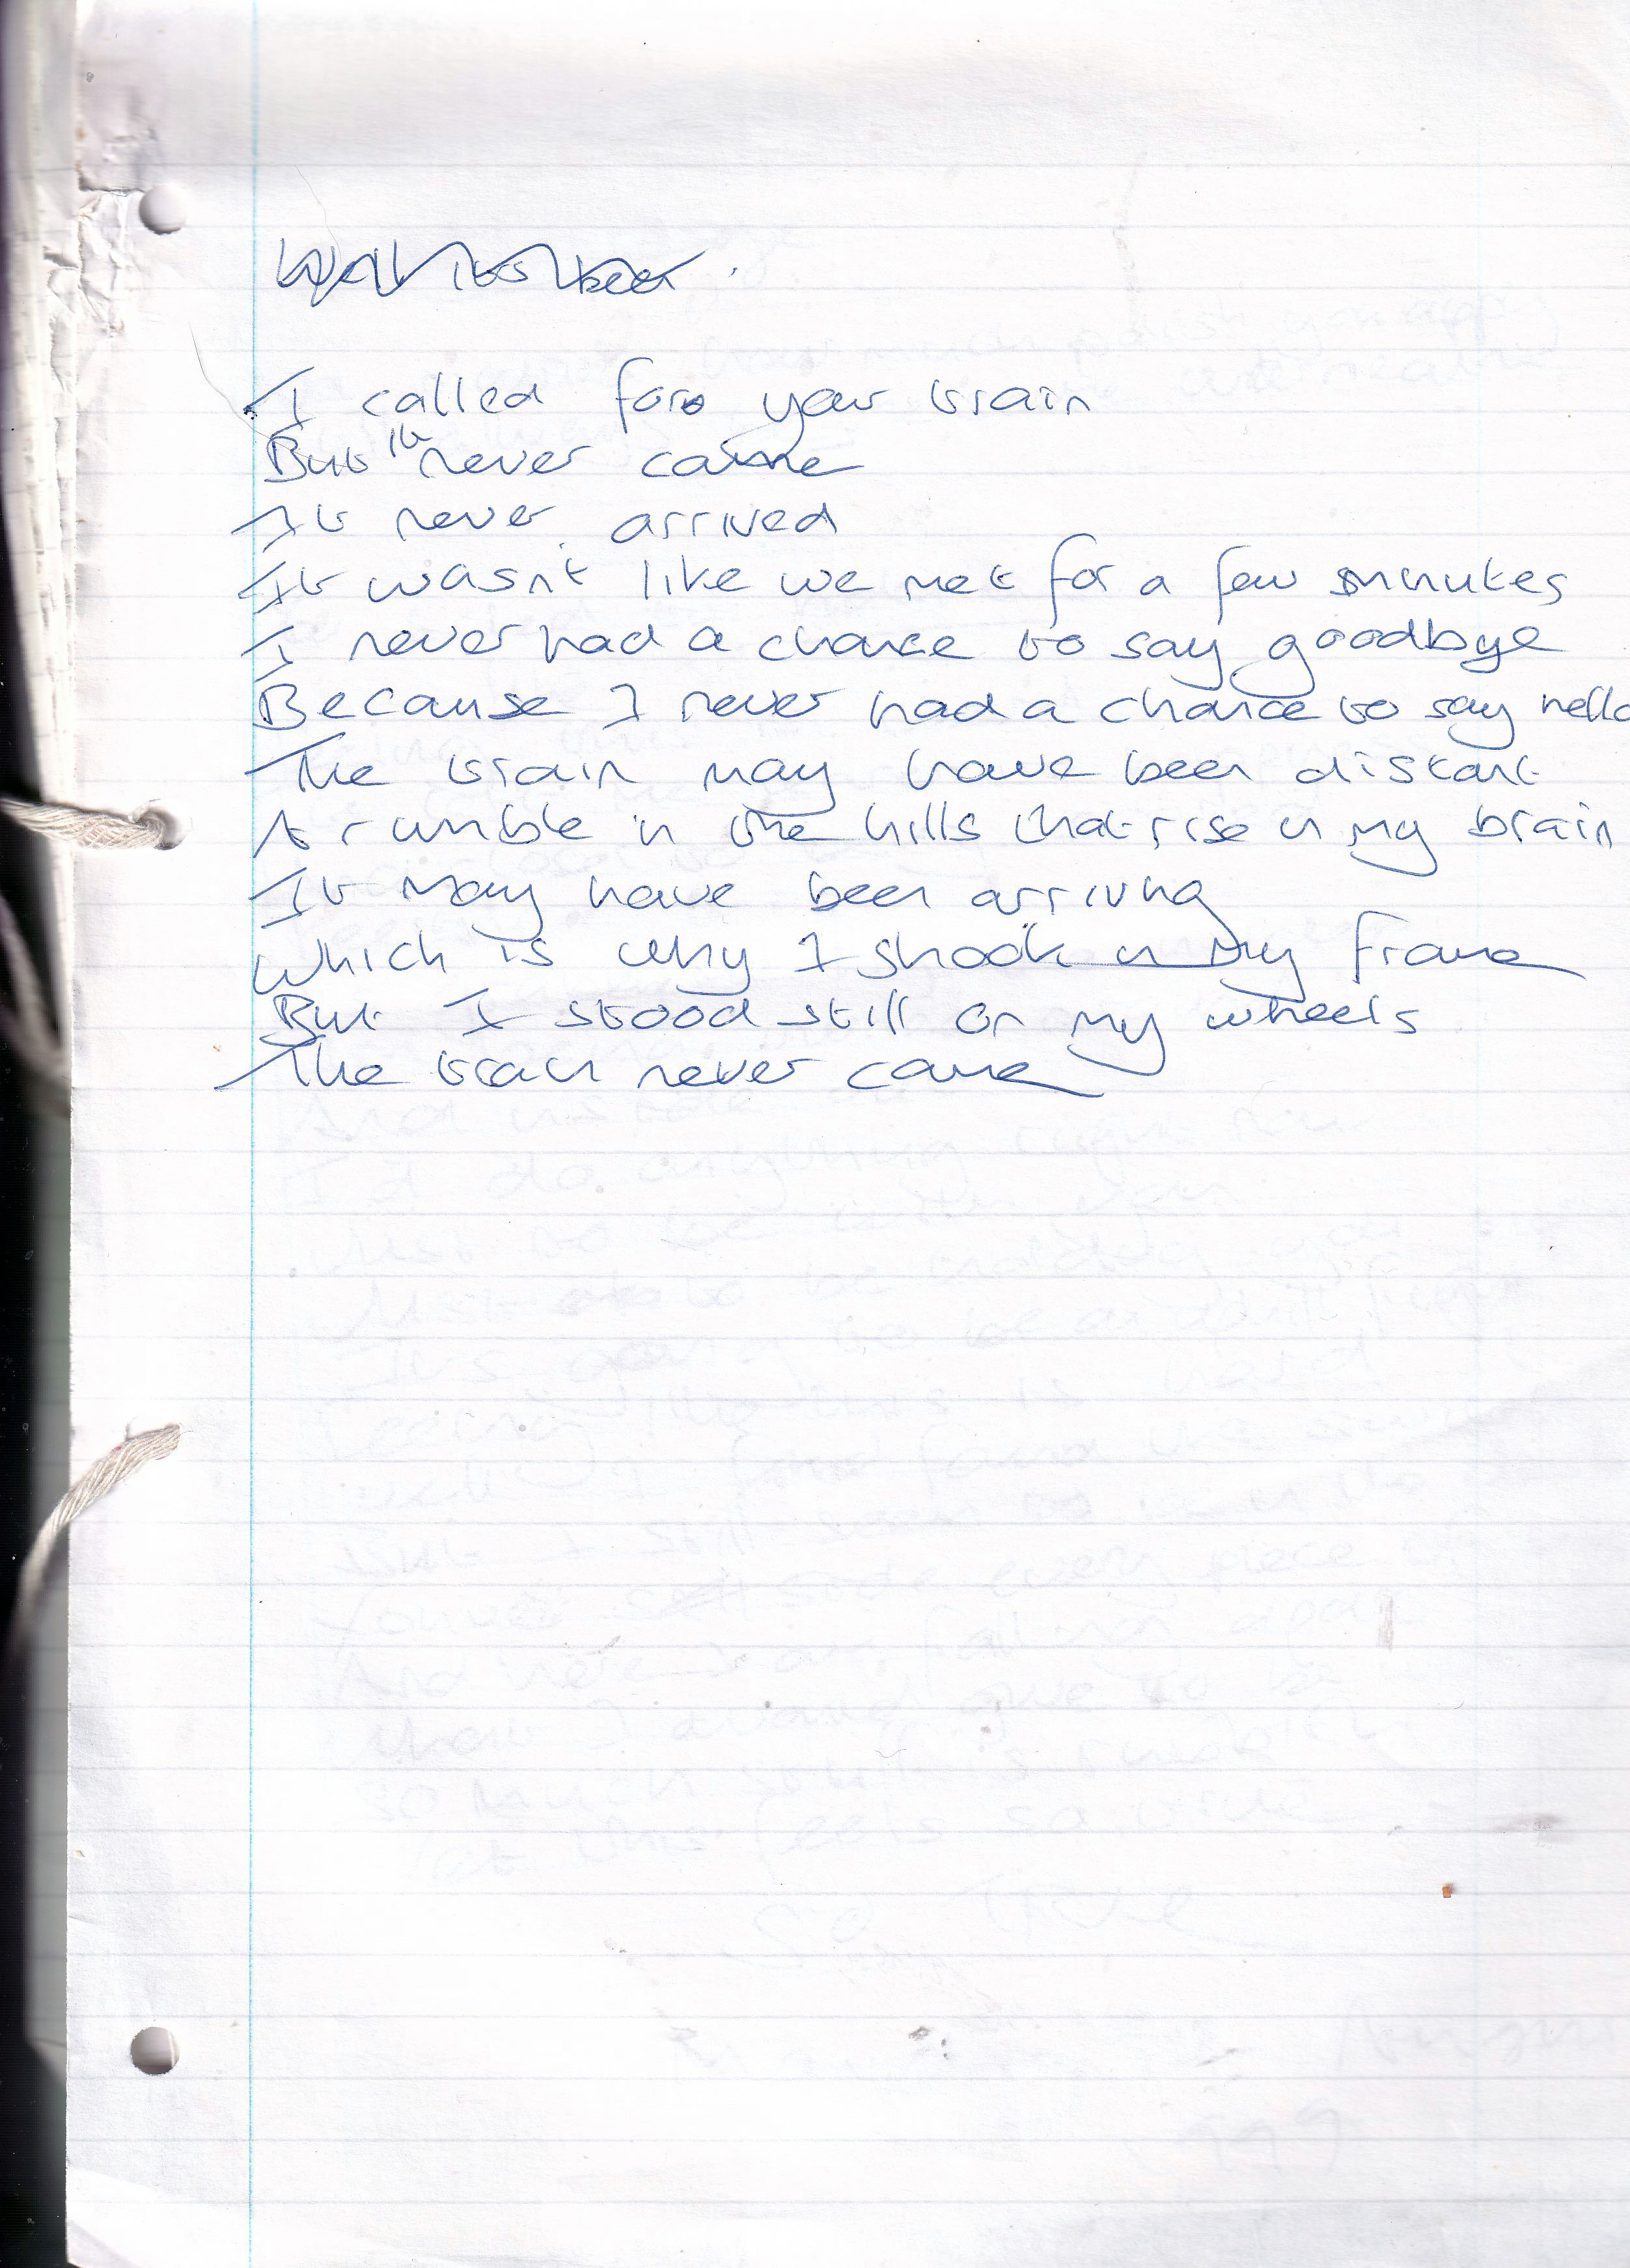 Well its been
I called for your train
But it never came
It never arrived
It wasn't like we met for a few minutes
I never had a chance to say goodbye
Because I never had a chance to say hello
The train may have been distant
A rumble in the hills that rise in my brain
It may have been arriving
Which is why I shook in my frame
But I stood still on my wheels
The train never came